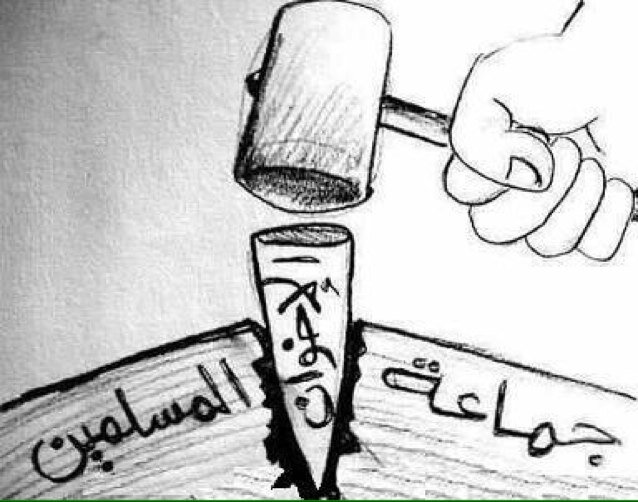 جماعة
الإخوان
المسلمين